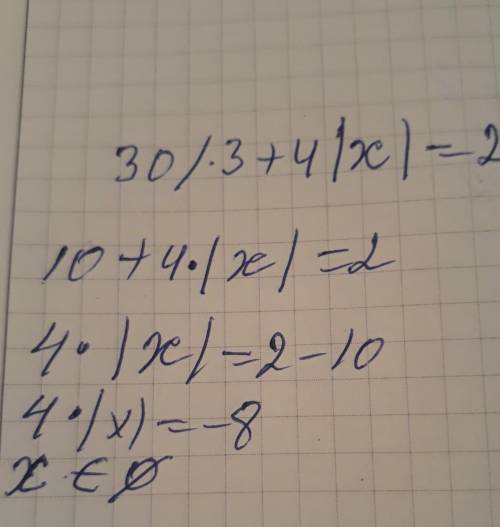 30/.3+4|x|=2
10+4·|x|=2
4·|x|=2-10
4·|x|=-8
x∈∅